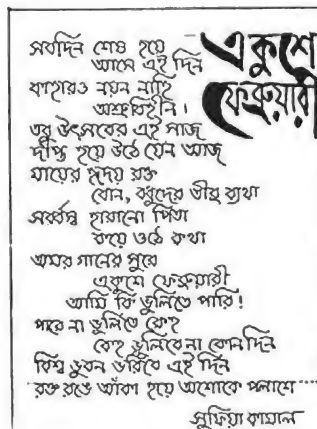 একুশে
ফেব্রুয়ারী
সবদিন শেষ হয়ে
আসে এই দিন
কাহারও নয়ন নাহি
অশ্রুবিহীন।
তবু উৎসবের এই সাজ
দীপ্ত হয়ে উঠে যেন আজ
মায়ের হৃদয় রক্ত
বোন, বধুদের তীব্র ব্যথা
সর্বস্ব হারানো পিতা
কয়ে ওঠে কথা
অমর গানের সুরে
একুশে ফেব্রুয়ারী
আমি কি ভুলিতে পারি!
পারে না ভুলিতে কেহ
কেহ ভুলিবে না কোনদিন
বিশ্ব ভুবন ভরিবে এই দিন
রক্ত রঙে আঁকা হয়ে অশোকে পলাশে
সুফিয়া কামাল